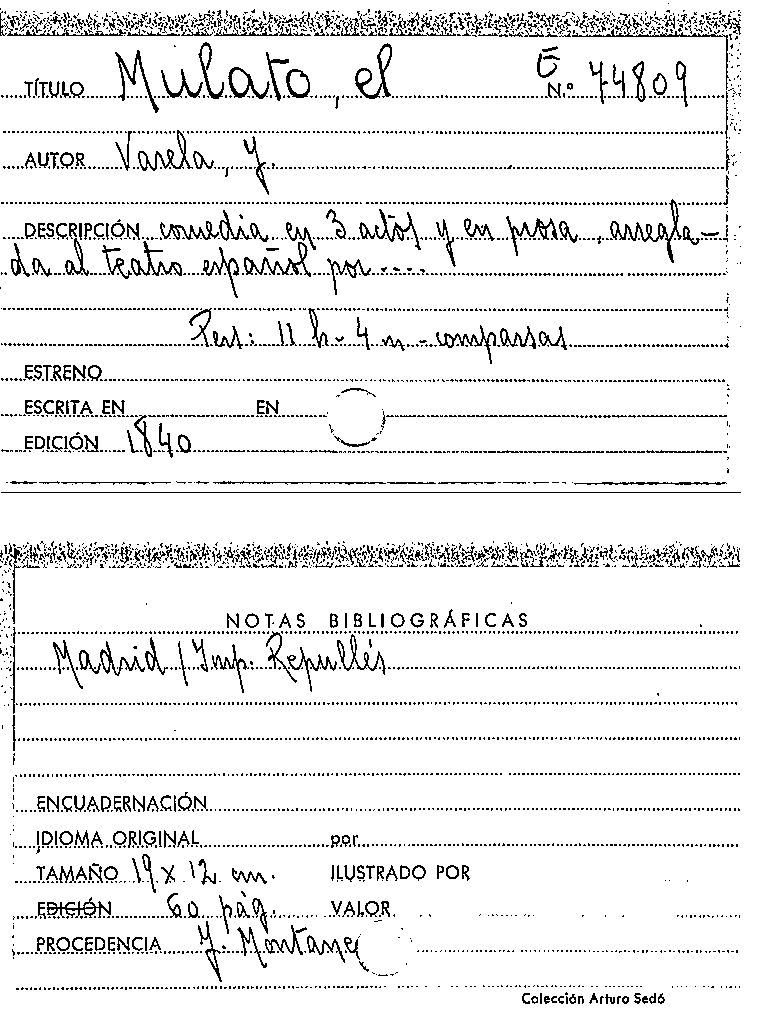 TÍTULO Mulato, el E N.º 44809
AUTOR Varela, J.
DESCRIPCIÓN comedia en 3 actos y en prosa, arregla-
da al teatro español por....
Pers: 11 h - 4 m - comparsas
ESTRENO
ESCRITA EN EN
EDICIÓN 1840
NOTAS BIBLIOGRÁFICAS
Madrid / Imp. Repullés
ENCUADERNACIÓN
IDIOMA ORIGINAL por
TAMAÑO 19 x 12 cm. ILUSTRADO POR
EDICIÓN 60 pág. VALOR
PROCEDENCIA J. Montane
Colección Arturo Sedó